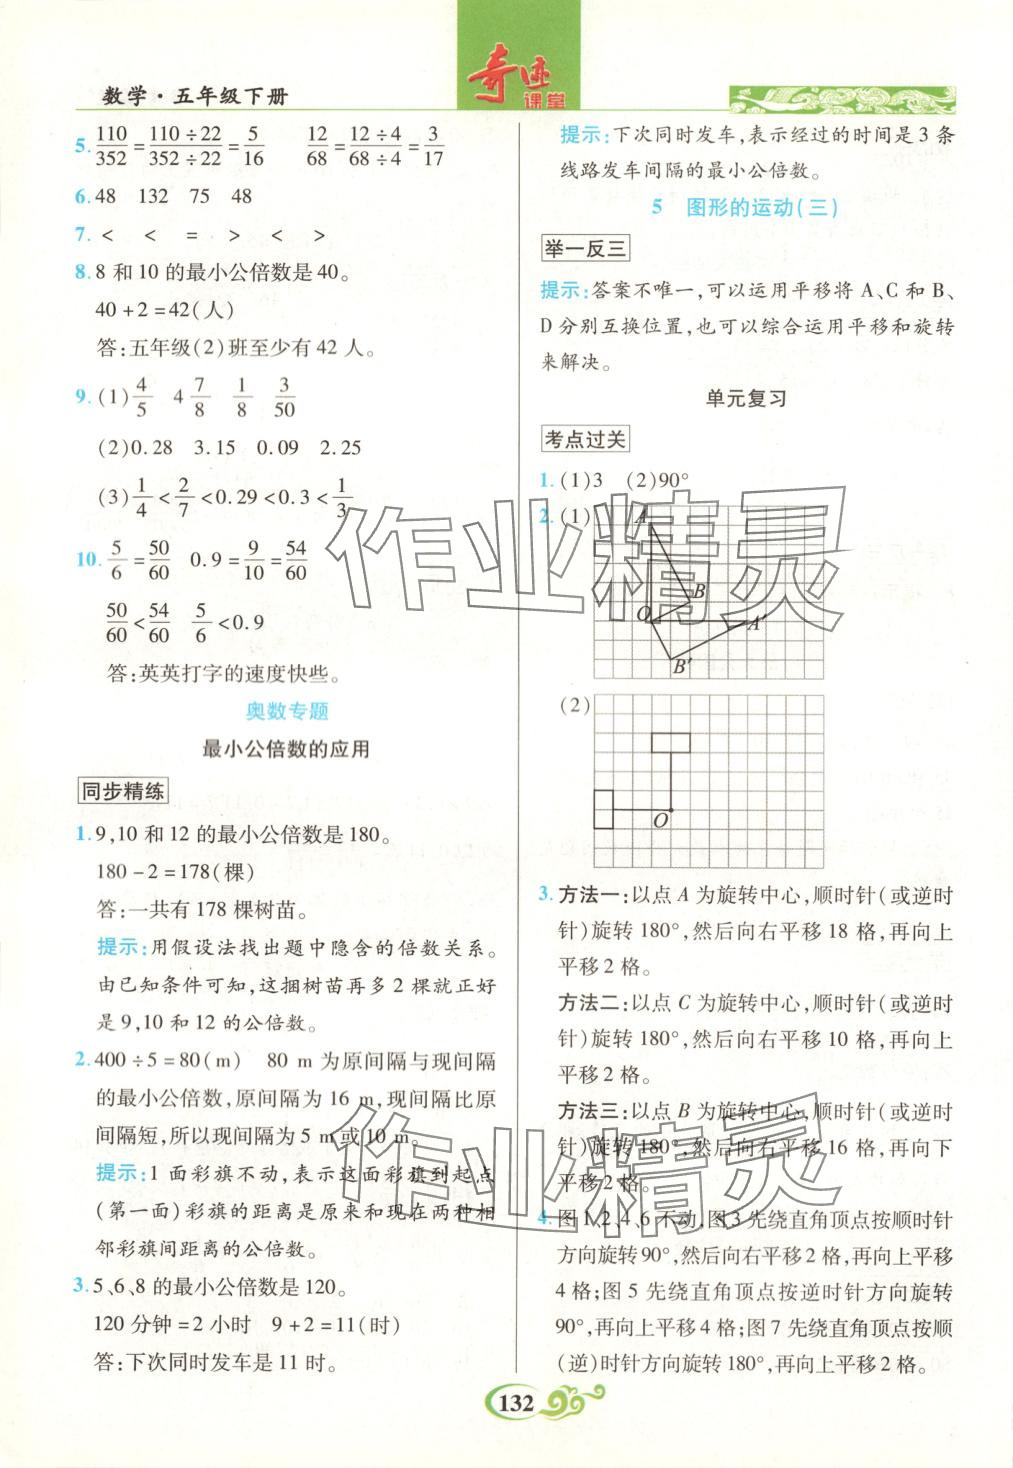 奇迹
课堂
数学·五年级下册
5. 110/352=110÷22/352÷22=5/16 12/68=12÷4/68÷4=3/17
6. 48 132 75 48
7. < < = > < >
8. 8 和 10 的最小公倍数是 40。
40+2=42(人)
答:五年级(2)班至少有 42 人。
9. (1)4/5 4 7/8 1/8 3/50
(2)0.28 3.15 0.09 2.25
(3)1/4<2/7<0.29<0.3<1/3
10. 5/6=50/60 0.9=9/10=54/60
50/60<54/60 5/6<0.9
答:英英打字的速度快些。
奥数专题
最小公倍数的应用
同步精练
1. 9,10 和 12 的最小公倍数是 180。
180-2=178(棵)
答:一共有 178 棵树苗。
提示:用假设法找出题中隐含的倍数关系。
由已知条件可知,这捆树苗再多 2 棵就正好
是 9,10 和 12 的公倍数。
2. 400÷5=80(m) 80 m 为原间隔与现间隔
的最小公倍数,原间隔为 16 m,现间隔比原
间隔短,所以现间隔为 5 m 或 10 m。
提示:1 面彩旗不动,表示这面彩旗到起点
(第一面)彩旗的距离是原来和现在两种相
邻彩旗间距离的公倍数。
3. 5、6、8 的最小公倍数是 120。
120 分钟=2 小时 9+2=11(时)
答:下次同时发车是 11 时。
提示:下次同时发车,表示经过的时间是 3 条
线路发车间隔的最小公倍数。
5 图形的运动(三)
举一反三
提示:答案不唯一,可以运用平移将 A、C 和 B、
D 分别互换位置,也可以综合运用平移和旋转
来解决。
单元复习
考点过关
1. (1)3 (2)90°
2. (1)
A
B
O
A′
B′
(2)
O
3. 方法一:以点 A 为旋转中心,顺时针(或逆时
针)旋转 180°,然后向右平移 18 格,再向上
平移 2 格。
方法二:以点 C 为旋转中心,顺时针(或逆时
针)旋转 180°,然后向右平移 10 格,再向上
平移 2 格。
方法三:以点 B 为旋转中心,顺时针(或逆时
针)旋转 180°,然后向右平移 16 格,再向下
平移 2 格。
4. 图 1、2、4、6 不动,图 3 先绕直角顶点按顺时针
方向旋转 90°,然后向右平移 2 格,再向上平移
4 格;图 5 先绕直角顶点按逆时针方向旋转
90°,再向上平移 4 格;图 7 先绕直角顶点按顺
(逆)时针方向旋转 180°,再向上平移 2 格。
132
作业精灵
作业精灵